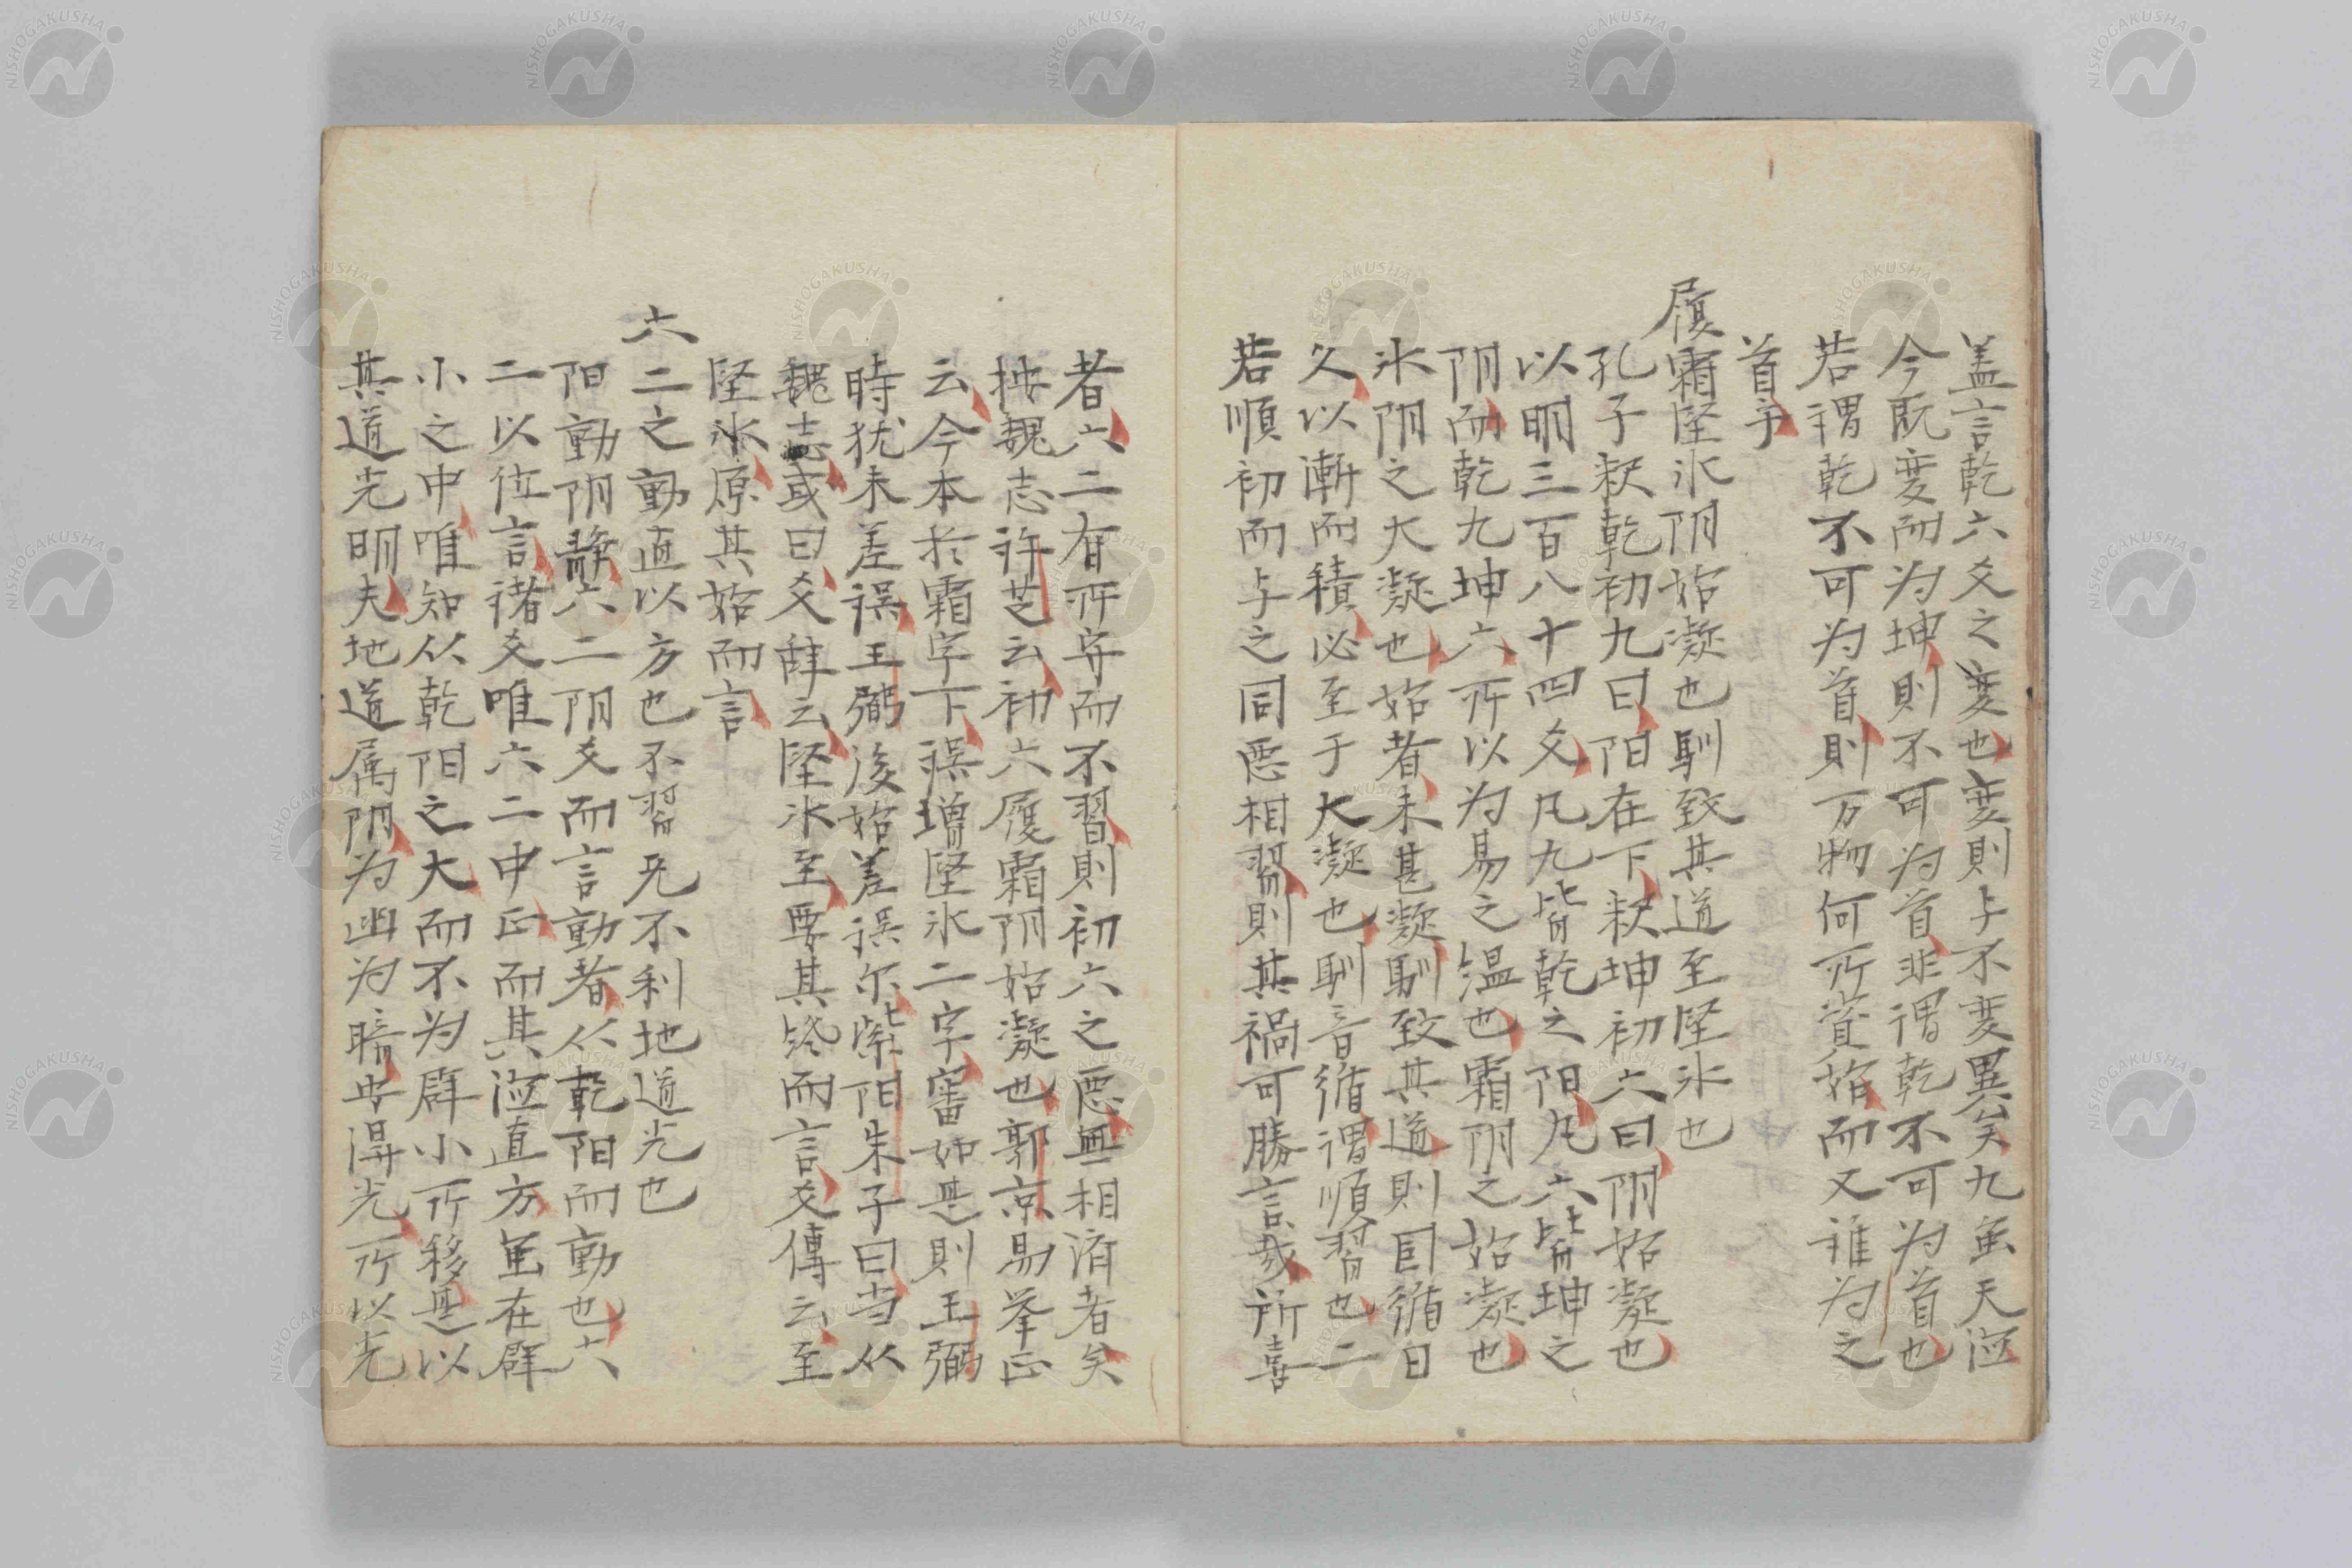 盖言乾六爻之変也変則与不変異矣九虽天徳
今既変而为坤則不可为首非谓乾不可为首也
若谓乾不可为首則万物何所資始而又誰为之
首乎
履霜坚氷阴始凝也馴致其道至坚氷也
孔子釈乾初九曰阳在下釈坤初六曰阴始凝也
以明三百八十四爻凡九皆乾之阳凡六皆坤之
阴而乾九坤六所以为易之温也霜阴之始凝也
氷阴之大凝也始者未甚凝馴致其道則因循日
久以漸而積必至于大凝也馴音循谓順習也二
若順初而与之同悪相習則其禍可勝言哉所喜
者六二有所守而不習則初六之悪無相済者矣
按魏志许芝云初六履霜阴始凝也郭京易挙正
云今本於霜字下誤増坚氷二字審如是則王弼
時犹未差误王弼後始差误尔紫阳朱子曰当从
魏志或曰爻辞云坚氷至要其终而言爻傳云至
坚氷原其始而言
六二之動直以方也不習无不利地道光也
阳動阴静六二阴爻而言動者从乾阳而動也六
二以位言諸爻唯六二中正而其徳直方虽在群
小之中唯知从乾阳之大而不为群小所移是以
其道光明夫地道属阴为幽为暗安得光所以光